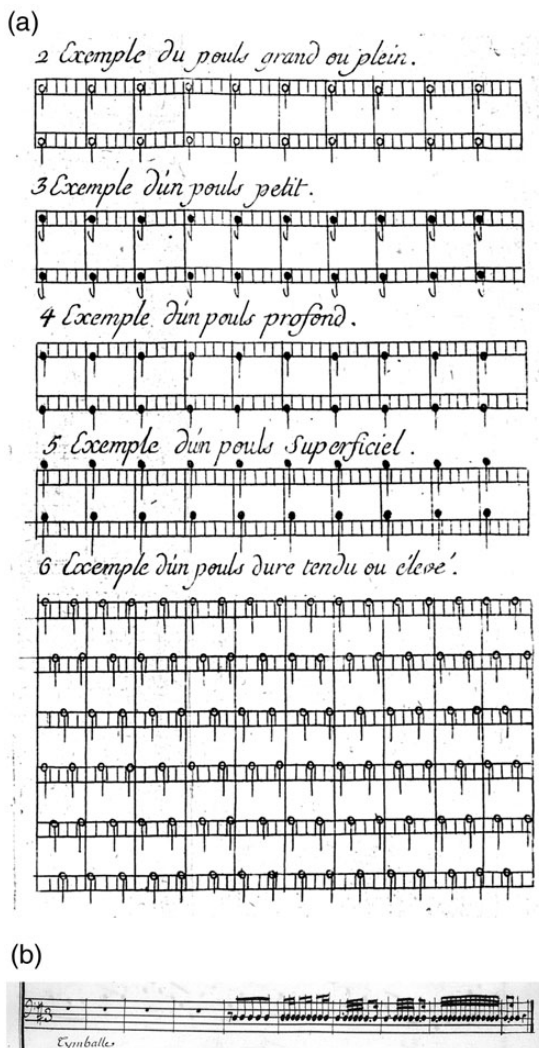 (a)
2 Exemple du pouls grand ou plein.
3 Exemple dún pouls petit.
4 Exemple dún pouls profond.
5 Exemple dún pouls Superficiel.
6 Exemple dún pouls dure tendu ou élevé.
(b)
Cymballes